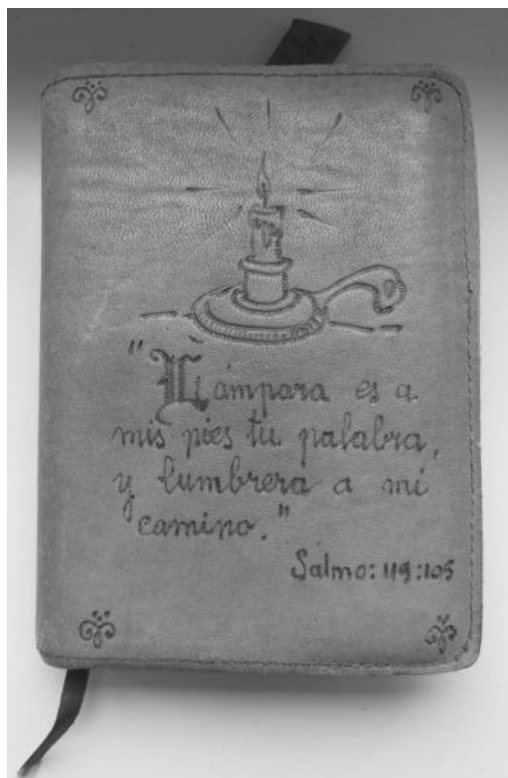 "Lámpara es a
mis pies tu palabra,
y lumbrera a mi
camino."
Salmo: 119:105